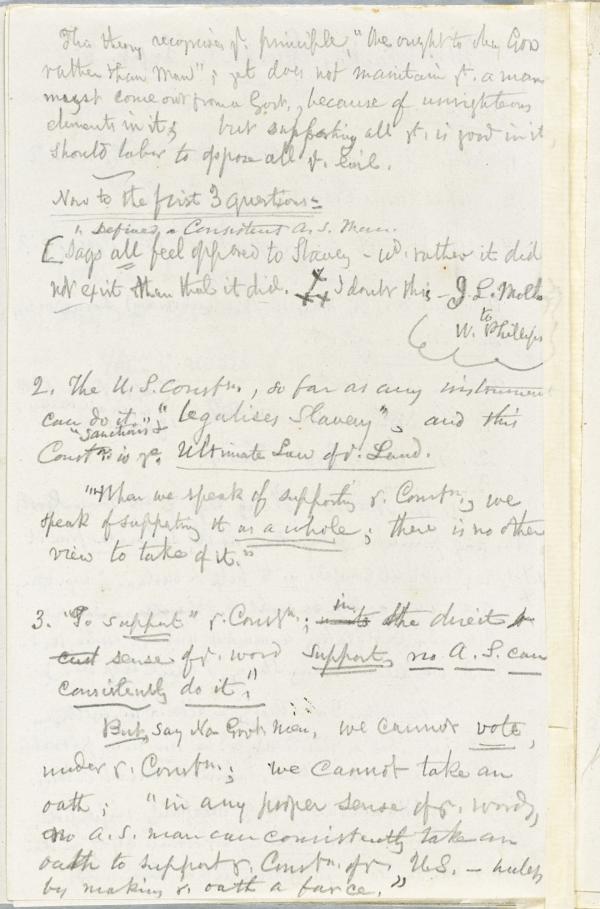 This theory recognises ye. principle, "We ought to obey God
rather than man"; yet does not maintain yt. a man
must come out from a Govt., because of unrighteous
elements in it; but supporting all yt. is good in it,
should labor to oppose all ye. evil.
Now to the first 3 questions:
" Defined a Consistent A.S. Man.
[Says all feel opposed to Slavery - wd. rather it did
not exist than that it did. I doubt this -
to
W. Phillips
2. The U.S. Constn., so far as any instrument
can do it, "legalises Slavery", and this
"sanctions" &
Constn. is ye. Ultimate Law of ye. Land.
"When we speak of supporting ye. Constn., we
speak of supporting it as a whole; there is no other
view to take of it."
3. "To support" ye. Constn.; in the direct
sense of ye. word support, no A.S. can
consistently do it."
But, say Non Govt. men, we cannot vote,
under ye. Constn.; we cannot take an
oath; "in any proper sense of ye. words,
no A.S. man can consistently take an
oath to support ye. Constn. of ye. U.S. - unless
by making ye. oath a farce."